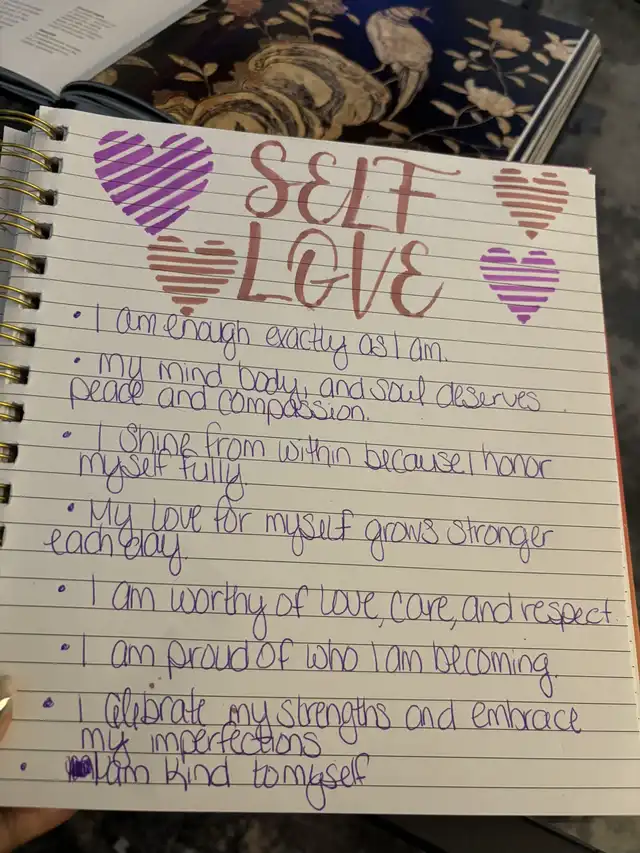 SELF
LOVE
• I am enough exactly as I am.
• my mind body, and soul deserves
peace and compassion.
• I shine from within because I honor
myself fully.
• My love for myself grows stronger
each day.
• I am worthy of love, care, and respect.
• I am proud of who I am becoming.
• I celebrate my strengths and embrace
my imperfections
• I am kind to myself